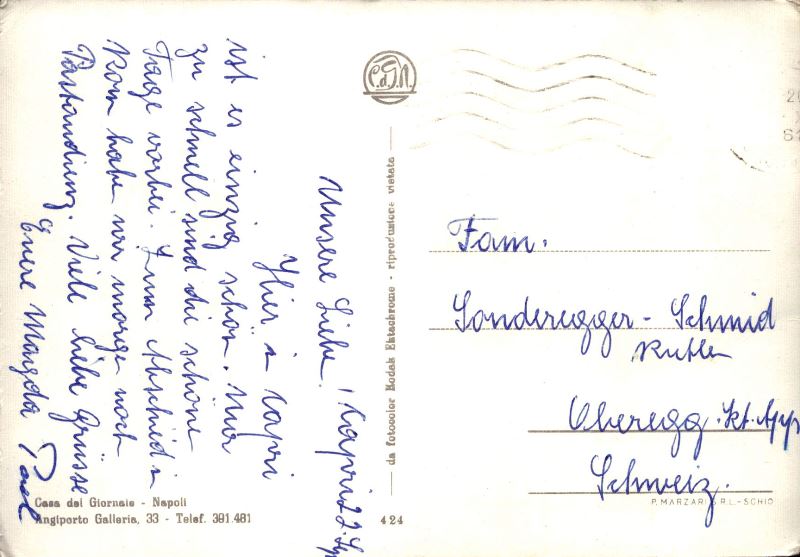 Unsere Liebe! Capri 22. Sep
Hier in Capri
ist es einzig schön. Nur
zu schnell sind die schöne
Tage vorbei. Zum Abschied in
Rom haben wir morgen noch
Viele liebe Grüsse
Eure Magda
Fam.
Sonderegger-Schmid
Oberegg. Kt. App
Schweiz.
C.d.G.N.
da fotocolor Kodak Ektachrome - riproduzione vietata
Casa del Giornale - Napoli
Angiporto Galleria, 33 - Telef. 391.481
424
P. MARZARI S.R.L. - SCHIO